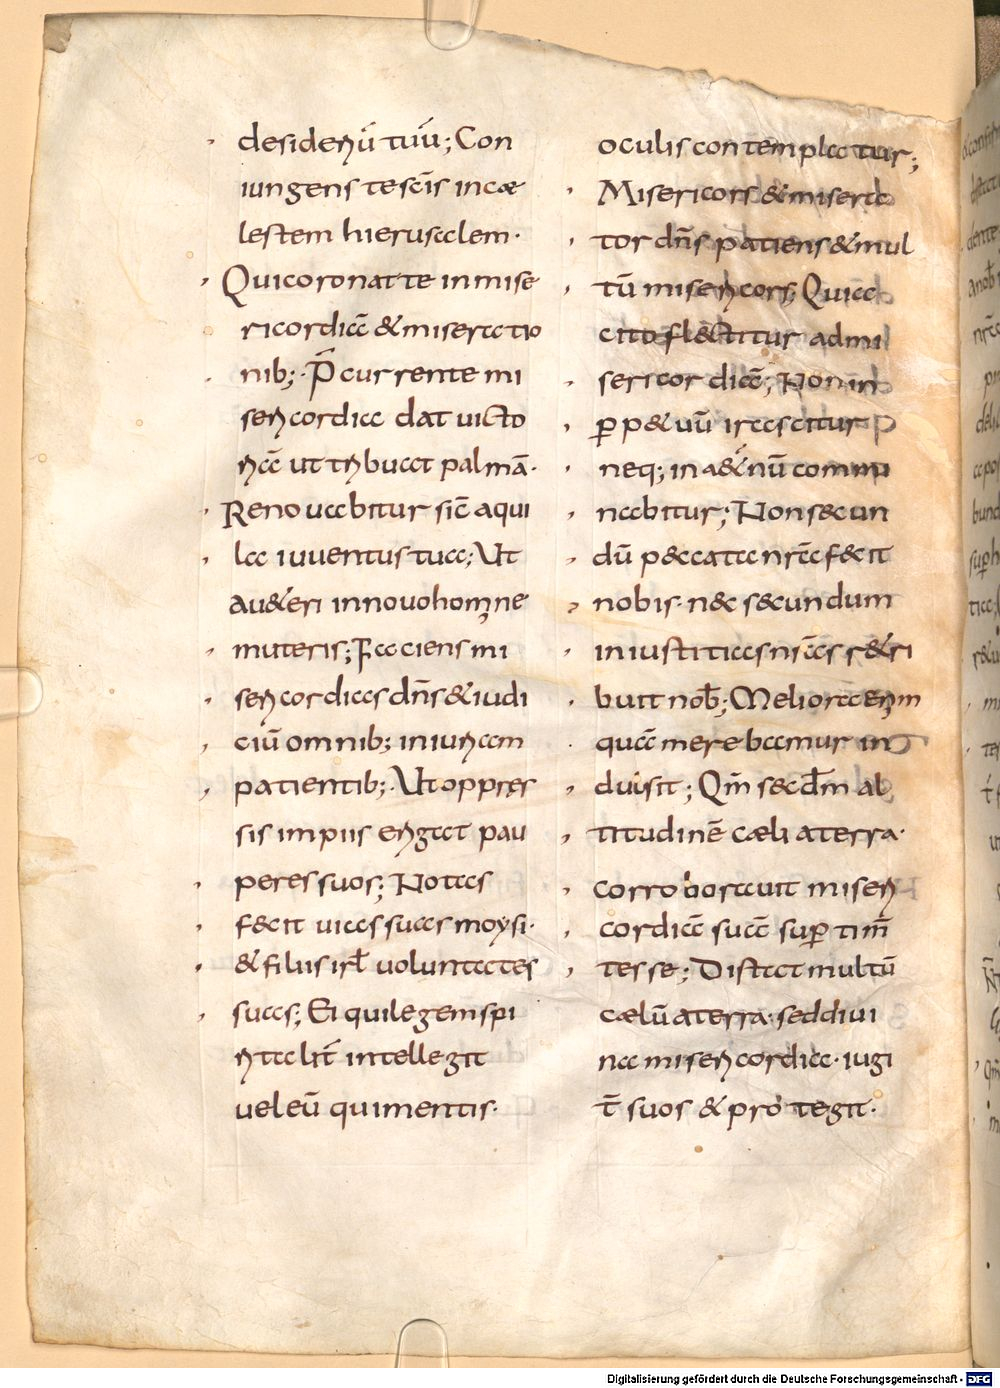 desideriū tuū; Con
iungens te scīs in cæ
lestem hierusalem·
Qui coronat te in mise
ricordiā & miseratio
nib;· P̄currente mi
sericordia dat victo
riā ut tribuat palmā·
Renovabitur sic̄ aqui
la iuventus tua; Ut
au&eri in novo homine
muteris; Faciens mi
sericordias dn̄s & iudi
ciū omnib; iniuriam
patientib;· Ut oppres
sis impiis erigat pau
peres suos; Notas
fecit uias suas moysi·
& filiis isrl̄ uoluntates
suas; Ei qui legem spi
ritalit̄ intellegit
uel eū qui mentis·
oculis contemplatur;
Misericors & misera
tor dn̄s patiens & mul
tū misericors; Quia
cito fl&titur ad mi
sericordiā; Non in
ꝑp&uū irascitur
neq; in a&nū commi
nabitur; Non secun
dū peccata nr̄a fecit
nobis· nec secundum
iniustitias nr̄as r&ri
buit nob̄; Meliora enim
quā merebamur in
dulsit; Qm̄ sec̄dm al
titudinē cæli a terra·
corroborauit miseri
cordiā suā suꝑ tim̄
tes se; Distat multū
cælū a terra· sed diui
na misericordia· iugi
t̄ suos & protegit·
Digitalisierung gefördert durch die Deutsche Forschungsgemeinschaft - DFG